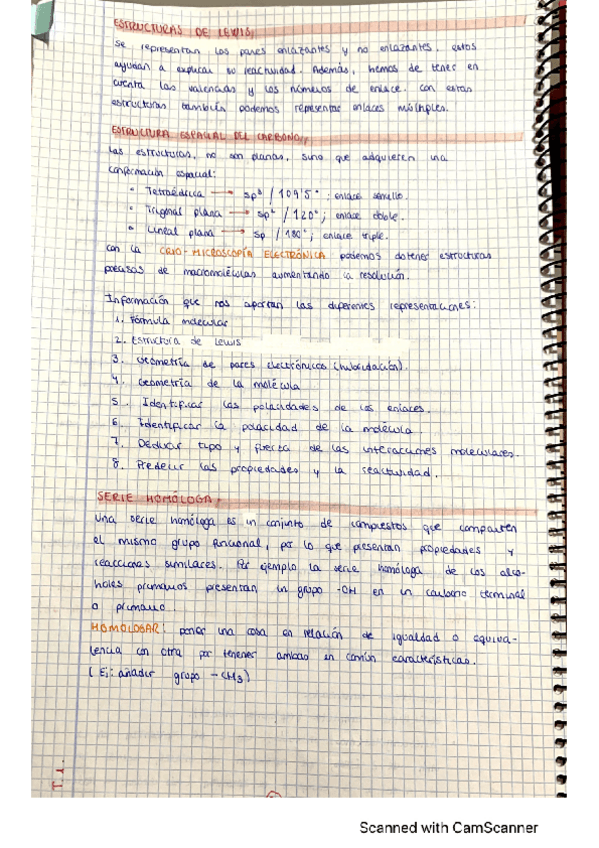 ESTRUCTURAS DE LEWIS
Se representan los pares enlazantes y no enlazantes, estos
ayudan a explicar su reactividad. Además, hemos de tener en
cuenta las valencias y los números de enlace. Con estas
estructuras también podemos representar enlaces múltiples.
ESTRUCTURA ESPACIAL DEL CARBONO
Las estructuras, no son planas, sino que adquieren una
conformación espacial:
• Tetraédrica → sp³ / 109'5°; enlace sencillo.
• Trigonal plana → sp² / 120°; enlace doble.
• Lineal plana → sp / 180°; enlace triple.
Con la CRIO-MICROSCOPÍA ELECTRÓNICA podemos obtener estructuras
precisas de macromoléculas aumentando la resolución.
Información que nos aportan las diferentes representaciones:
1. Fórmula molecular
2. Estructura de Lewis
3. Geometría de pares electrónicos (hibridación).
4. Geometría de la molécula
5. Identificar las polaridades de los enlaces.
6. Identificar la polaridad de la molécula.
7. Deducir tipo y fuerza de las interacciones moleculares.
8. Predecir las propiedades y la reactividad.
SERIE HOMÓLOGA
Una serie homóloga es un conjunto de compuestos que comparten
el mismo grupo funcional, por lo que presentan propiedades y
reacciones similares. Por ejemplo la serie homóloga de los alco-
holes primarios presentan un grupo -OH en un carbono terminal
o primario.
HOMOLOGAR: poner una cosa en relación de igualdad o equiva-
lencia con otra por tener ambas en común características.
(Ej: añadir grupo -CH3)
T.1.
Scanned with CamScanner